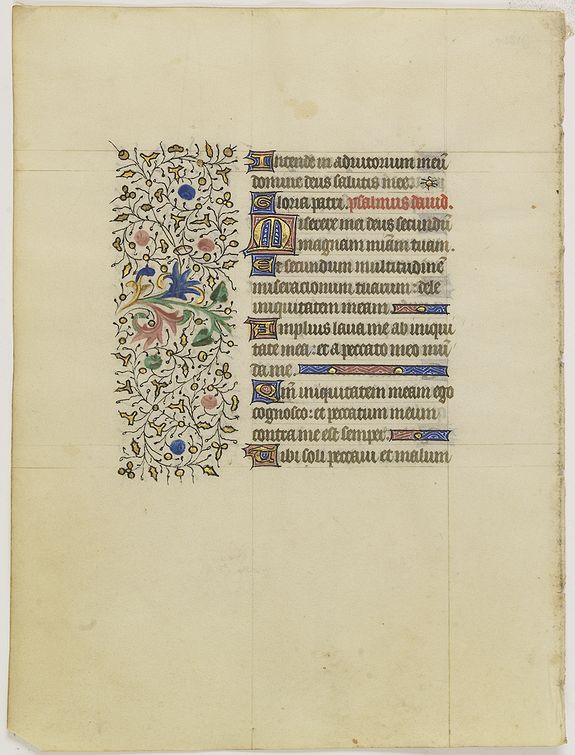 Intende in adiutorium meū
domine deus salutis mee.
Gloria patri. psalmus dauid.
Miserere mei deus secundū
magnam miām tuam.
Et secundum multitudinē
miseracionum tuarum: dele
iniquitatem meam.
Amplius laua me ab iniqui
tate mea: et a peccato meo mū
da me.
Qm̄ iniquitatem meam ego
cognosco: et peccatum meum
contra me est semper.
Tibi soli peccaui et malum